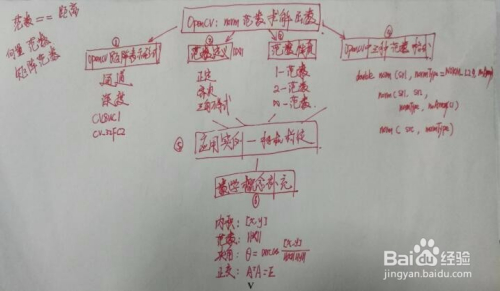 范数 == 距离
向量范数
矩阵范数
OpenCV: norm 范数求解函数
①
OpenCV 矩阵表示形式
通道
深度
CV8UC1
②
范数定义 ||x||
正定
齐次
三角不等式
③
范数种类
1-范数
2-范数
∞-范数
④
OpenCV中三种范数
double norm (src1, normType=NORM_L2,
norm (src1, src2,
normType,
norm ( src, normType)
⑤
应用实例 —
数学概念补充
⑥
内积: [x,y]
范数: ||x||
夹角: θ = arccos [x,y] / ||x|| ||y||
正交: AᵀA=E
V
Baidu 经验
jingyan.baidu.com